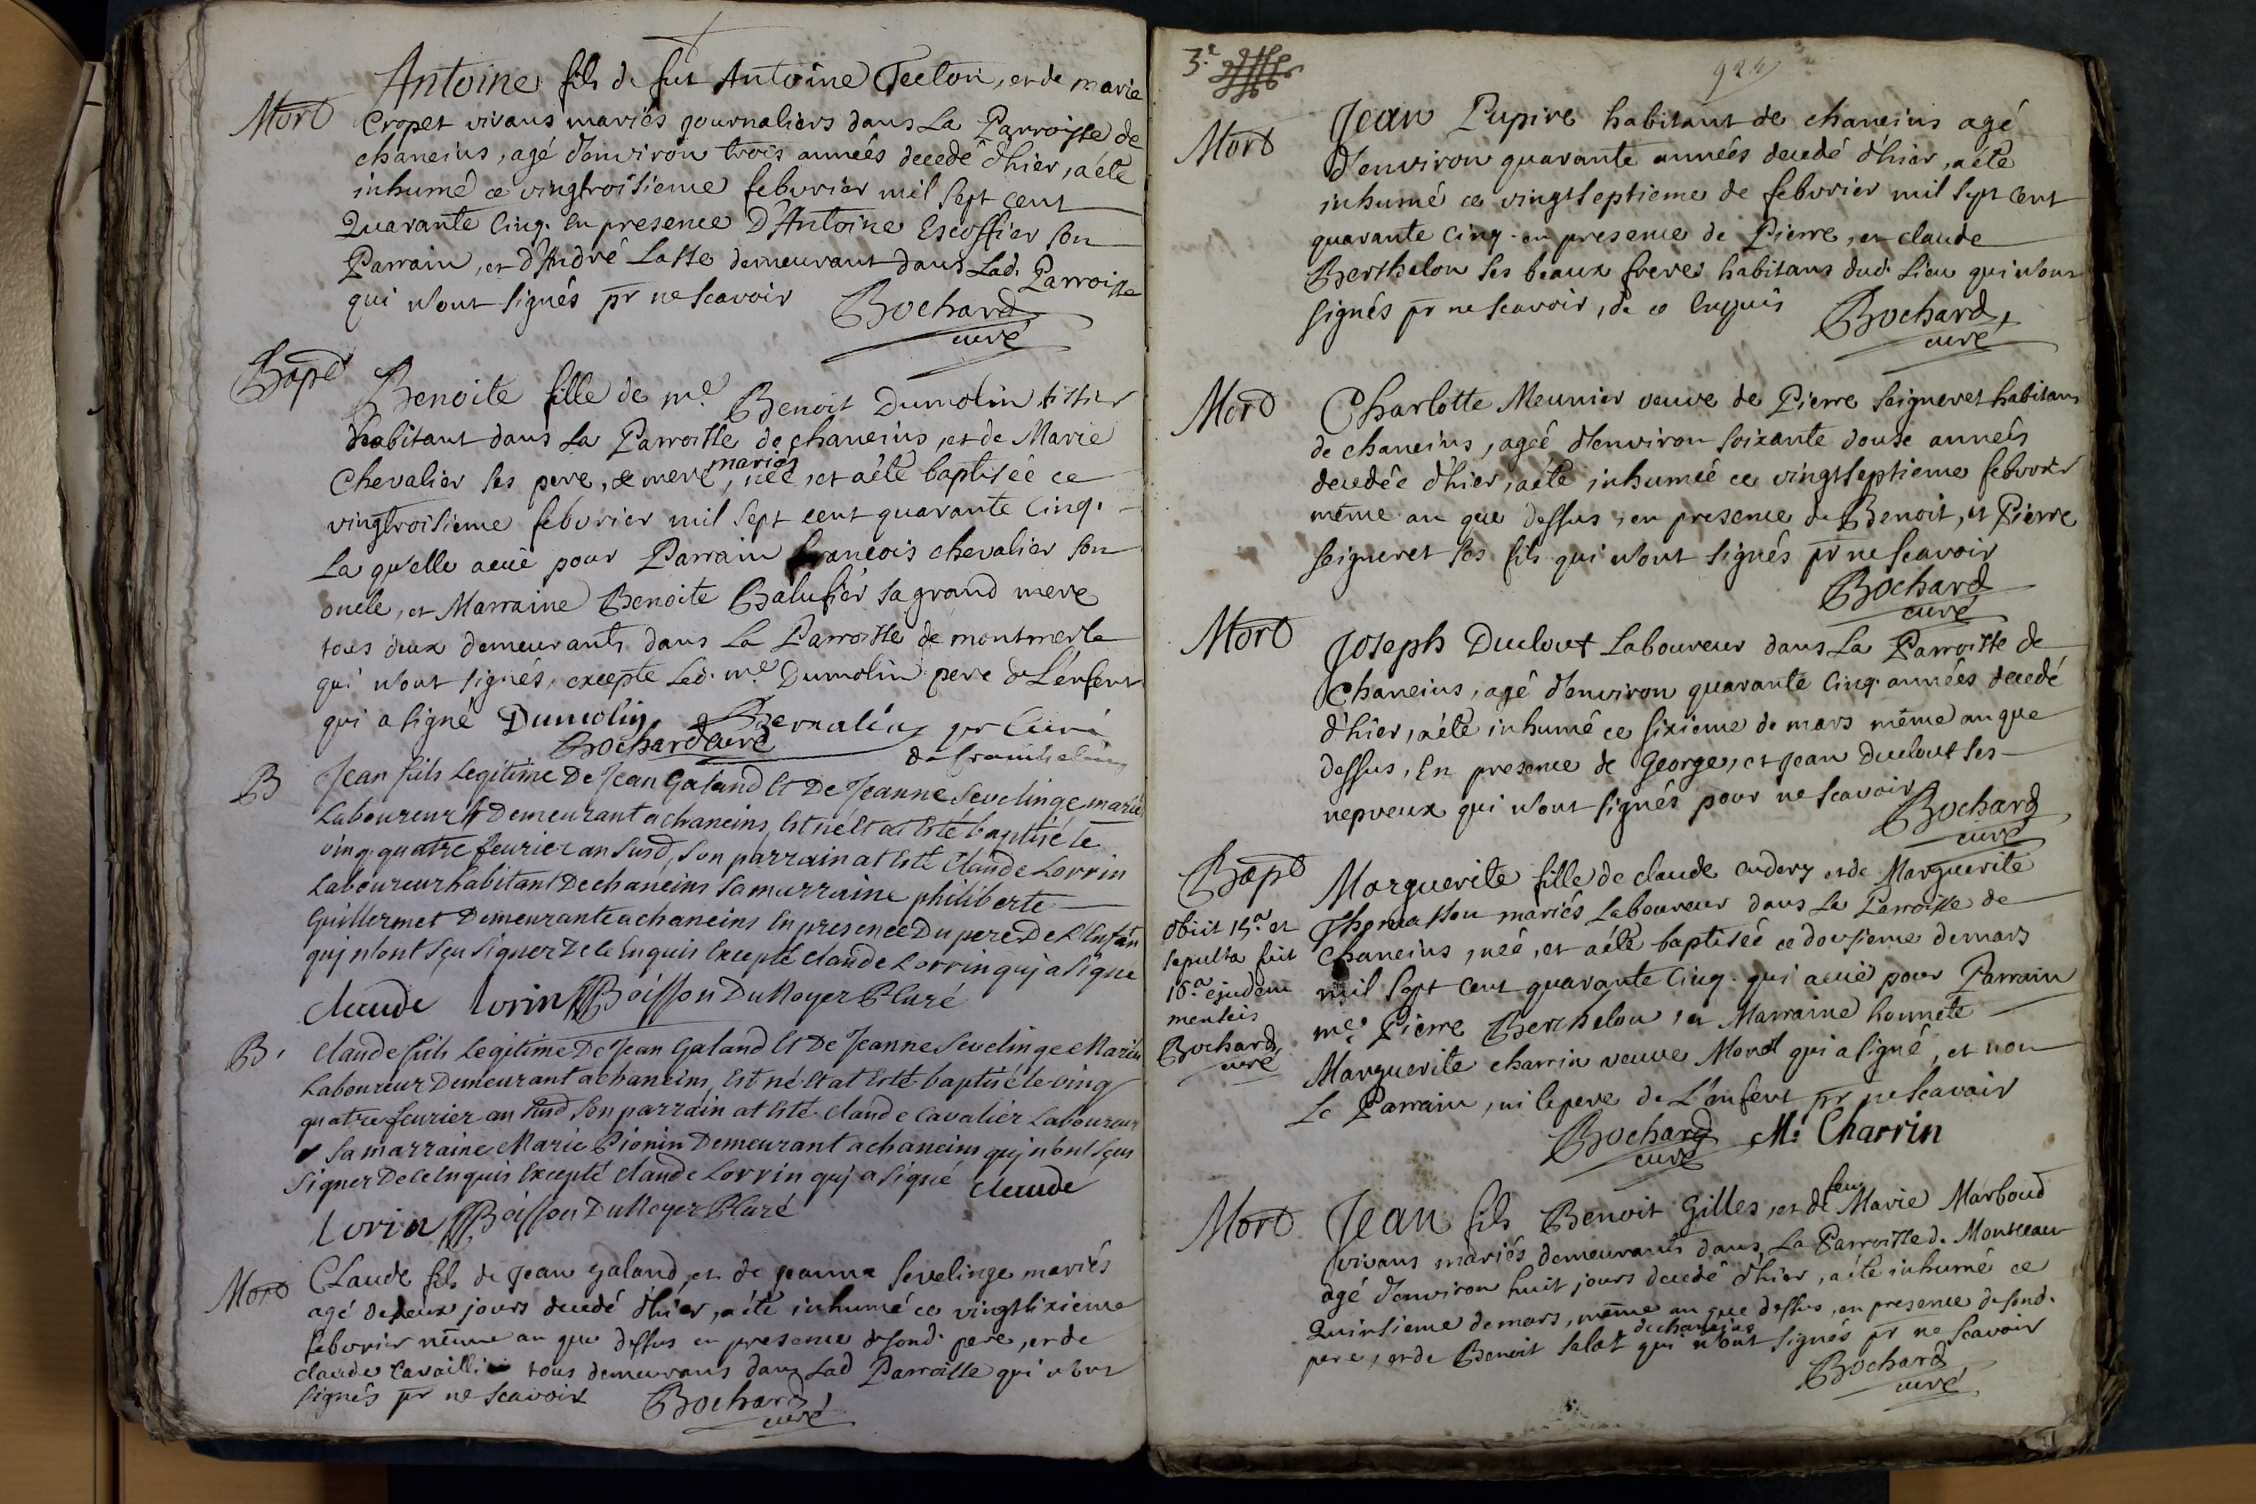 Mort
Antoine fils de fut Antoine Teeton, et de marie
Cropet vivans mariés journaliers dans La Parroisse de
chaneins, agé d'environ trois années decedé d'hier, a été
inhumé ce vingtroisieme febvrier mil sept cent
Quarante Cinq. En presence D'Antoine Escoffier son
Parrain, et d'André Lasse demeurant dans Lad. Parroisse
qui n'ont signés pr ne scavoir Bochard
curé
Bapt
Benoite fille de me. Benoit Dumolin tissier
habitant dans La Parroisse de chaneins, et de Marie
Chevalier ses pere, & mere mariés, néé, et a été baptiséé ce
vingtroisieme febvrier mil sept cent quarante Cinq.
La qu'elle a eüe pour Parrain francois chevalier son
oncle, et Marraine Benoite Balufier sa grand mere
tous deux demeurants dans La Parroisse de montmerle
qui n'ont signés, excepte Led. me. Dumolin pere de L'enfent
qui a signé Dumolin,
Bochard curé
B
Jean fils Legitime De Jean Galand Et De Jeanne Sevelinge mariés
Laboureur Demeurant a chaneins, Est né Et at Esté baptisé le
vingquatre feurier an susd, son parrain at Esté Claude Lorrin
Laboureur habitant De chaneins Sa marraine philiberte
Guillermet Demeurante a chaneins En presence Du pere De L'Enfan
quj n'ont sçu signer De ce Enquis Excepté Claude Lorrin quj a signe
claude lorin Boisson Du Noyer P Curé
B.
Claude fils Legitime De Jean Galand Et De Jeanne Sevelinge Mariés
Laboureur Demeurant a chaneins, Est né Et at Esté baptisé le ving
quatre feurier an susd son parrain at Esté claude Cavalier Laboureur
Sa marraine Marie Pionin Demeurant a chaneins quj n'ont sçus
signer De ce Enquis Excepté Claude Lorrin quj a signé claude
lorin Boisson Du Noyer P Curé
Mort
Claude fils de Jean galand, et de jeanne sevelinge mariés
agé de deux jours decedé d'hier, a été inhumé ce vingtsixieme
febvrier même an que dessus en presence de sond. pere, et de
claude Cavailli tous demeurans dans Lad Parroisse qui n'ont
signés pr ne scavoir Bochard
curé
3.e
Mort
Jean Pupire habitant de chaneins agé
d'environ quarante années decedé d'hier, a été
inhumé ce vingtseptieme de febvrier mil sept cent
quarante Cinq. en presence de Pierre, et claude
Berthelon ses beaux freres habitans dud. Lieu qui n'ont
signés pr ne scavoir, de ce Enquis Bochard
curé
Mort
Charlotte Meunier veuve de Pierre seigneret habitans
de chaneins, ageé d'environ soixante douse anneés
decedée d'hier, a été inhumeé ce vingtseptieme febvrier
même an que dessus, en presence de Benoit, et Pierre
seigneret ses fils qui n'ont signés pr ne scavoir
Bochard
curé
Mort
Joseph Duclout Laboureur dans La Parroisse de
Chaneins, agé d'environ quarante Cinq années decedé
d'hier, a été inhumé ce sixieme de mars même an que
dessus, En presence de George, et Jean Duclout ses
nepveux qui n'ont signés pour ne scavoir
Bochard
curé
Bapt
obiit 15.a et
sepulta fuit
16.a ejudem
mensis
Bochard
curé
Marguerite fille de claude et de Marguerite
Thomasson mariés Laboureur dans La Parroisse de
Chaneins, néé, et a été baptiséé ce dousieme de mars
mil sept cent quarante Cinq. qui a eüe pour Parrain
me. Pierre Berthelon, et Marraine honnete
Marguerite charrin veuve Morel qui a signé, et non
Le Parrain, ni le pere de L'enfent pr ne scavoir
Bochard M. Charrin
curé
Mort
Jean fils Benoit Gilles, et de feue Marie Marboud
vivans mariés demeurants dans La Parroisse de Monceau
agé d'environ huit jours decedé d'hier, a été inhumé ce
Quinsieme de mars, même an que dessus, en presence de sond.
pere, et de Benoit salat de chaneins qui n'ont signés pr ne scavoir
Bochard
curé